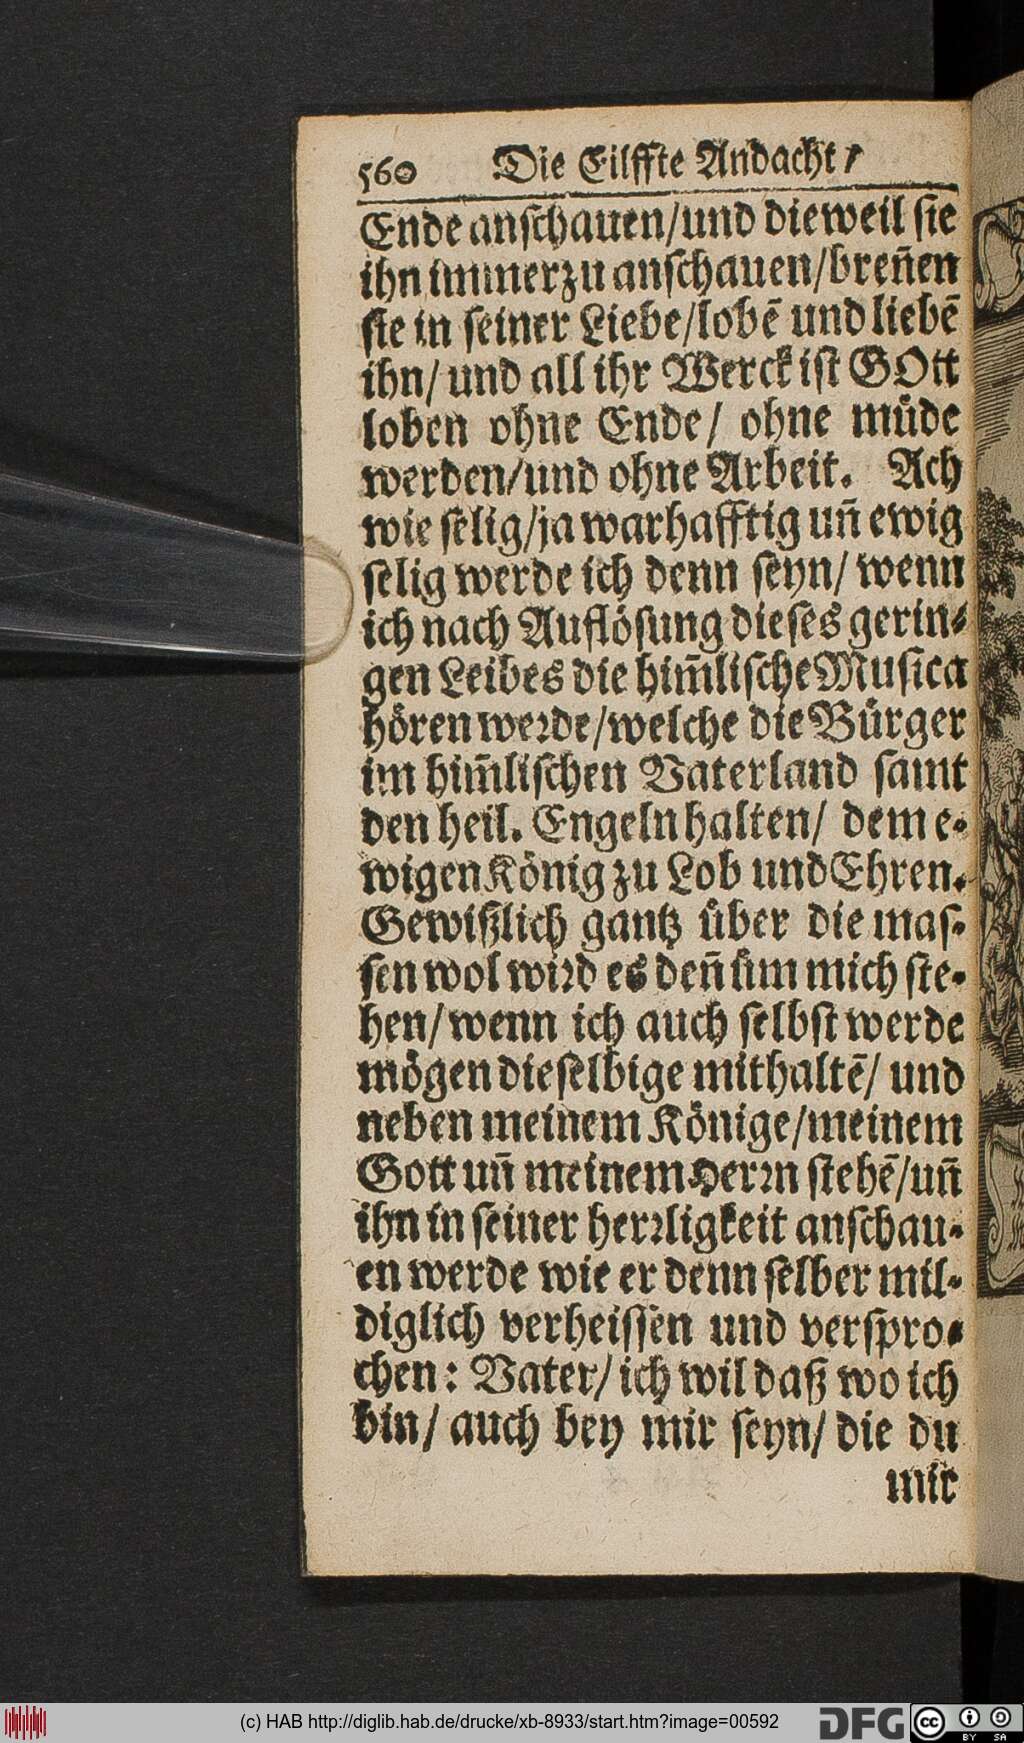 560 Die Eilffte Andacht /
Ende anschauen / und dieweil sie
ihn immerzu anschauen / breñen
sie in seiner Liebe / lobē und liebē
ihn / und all ihr Werck ist GOtt
loben ohne Ende / ohne müde
werden / und ohne Arbeit. Ach
wie selig / ja warhafftig uñ ewig
selig werde ich denn seyn / wenn
ich nach Auflösung dieses gerin-
gen Leibes die him̃lische Musica
hören werde / welche die Bürger
im him̃lischen Vaterland samt
den heil. Engeln halten / dem e-
wigen König zu Lob und Ehren.
Gewißlich gantz über die mas-
sen wol wird es deñ üm mich ste-
hen / wenn ich auch selbst werde
mögen dieselbige mithaltē / und
neben meinem Könige / meinem
Gott uñ meinem Herrn stehē / uñ
ihn in seiner herrligkeit anschau-
en werde wie er denn selber mil-
diglich verheissen und verspro-
chen: Vater / ich wil daß wo ich
bin / auch bey mir seyn / die du
mir
(c) HAB http://diglib.hab.de/drucke/xb-8933/start.htm?image=00592
DFG
cc BY SA